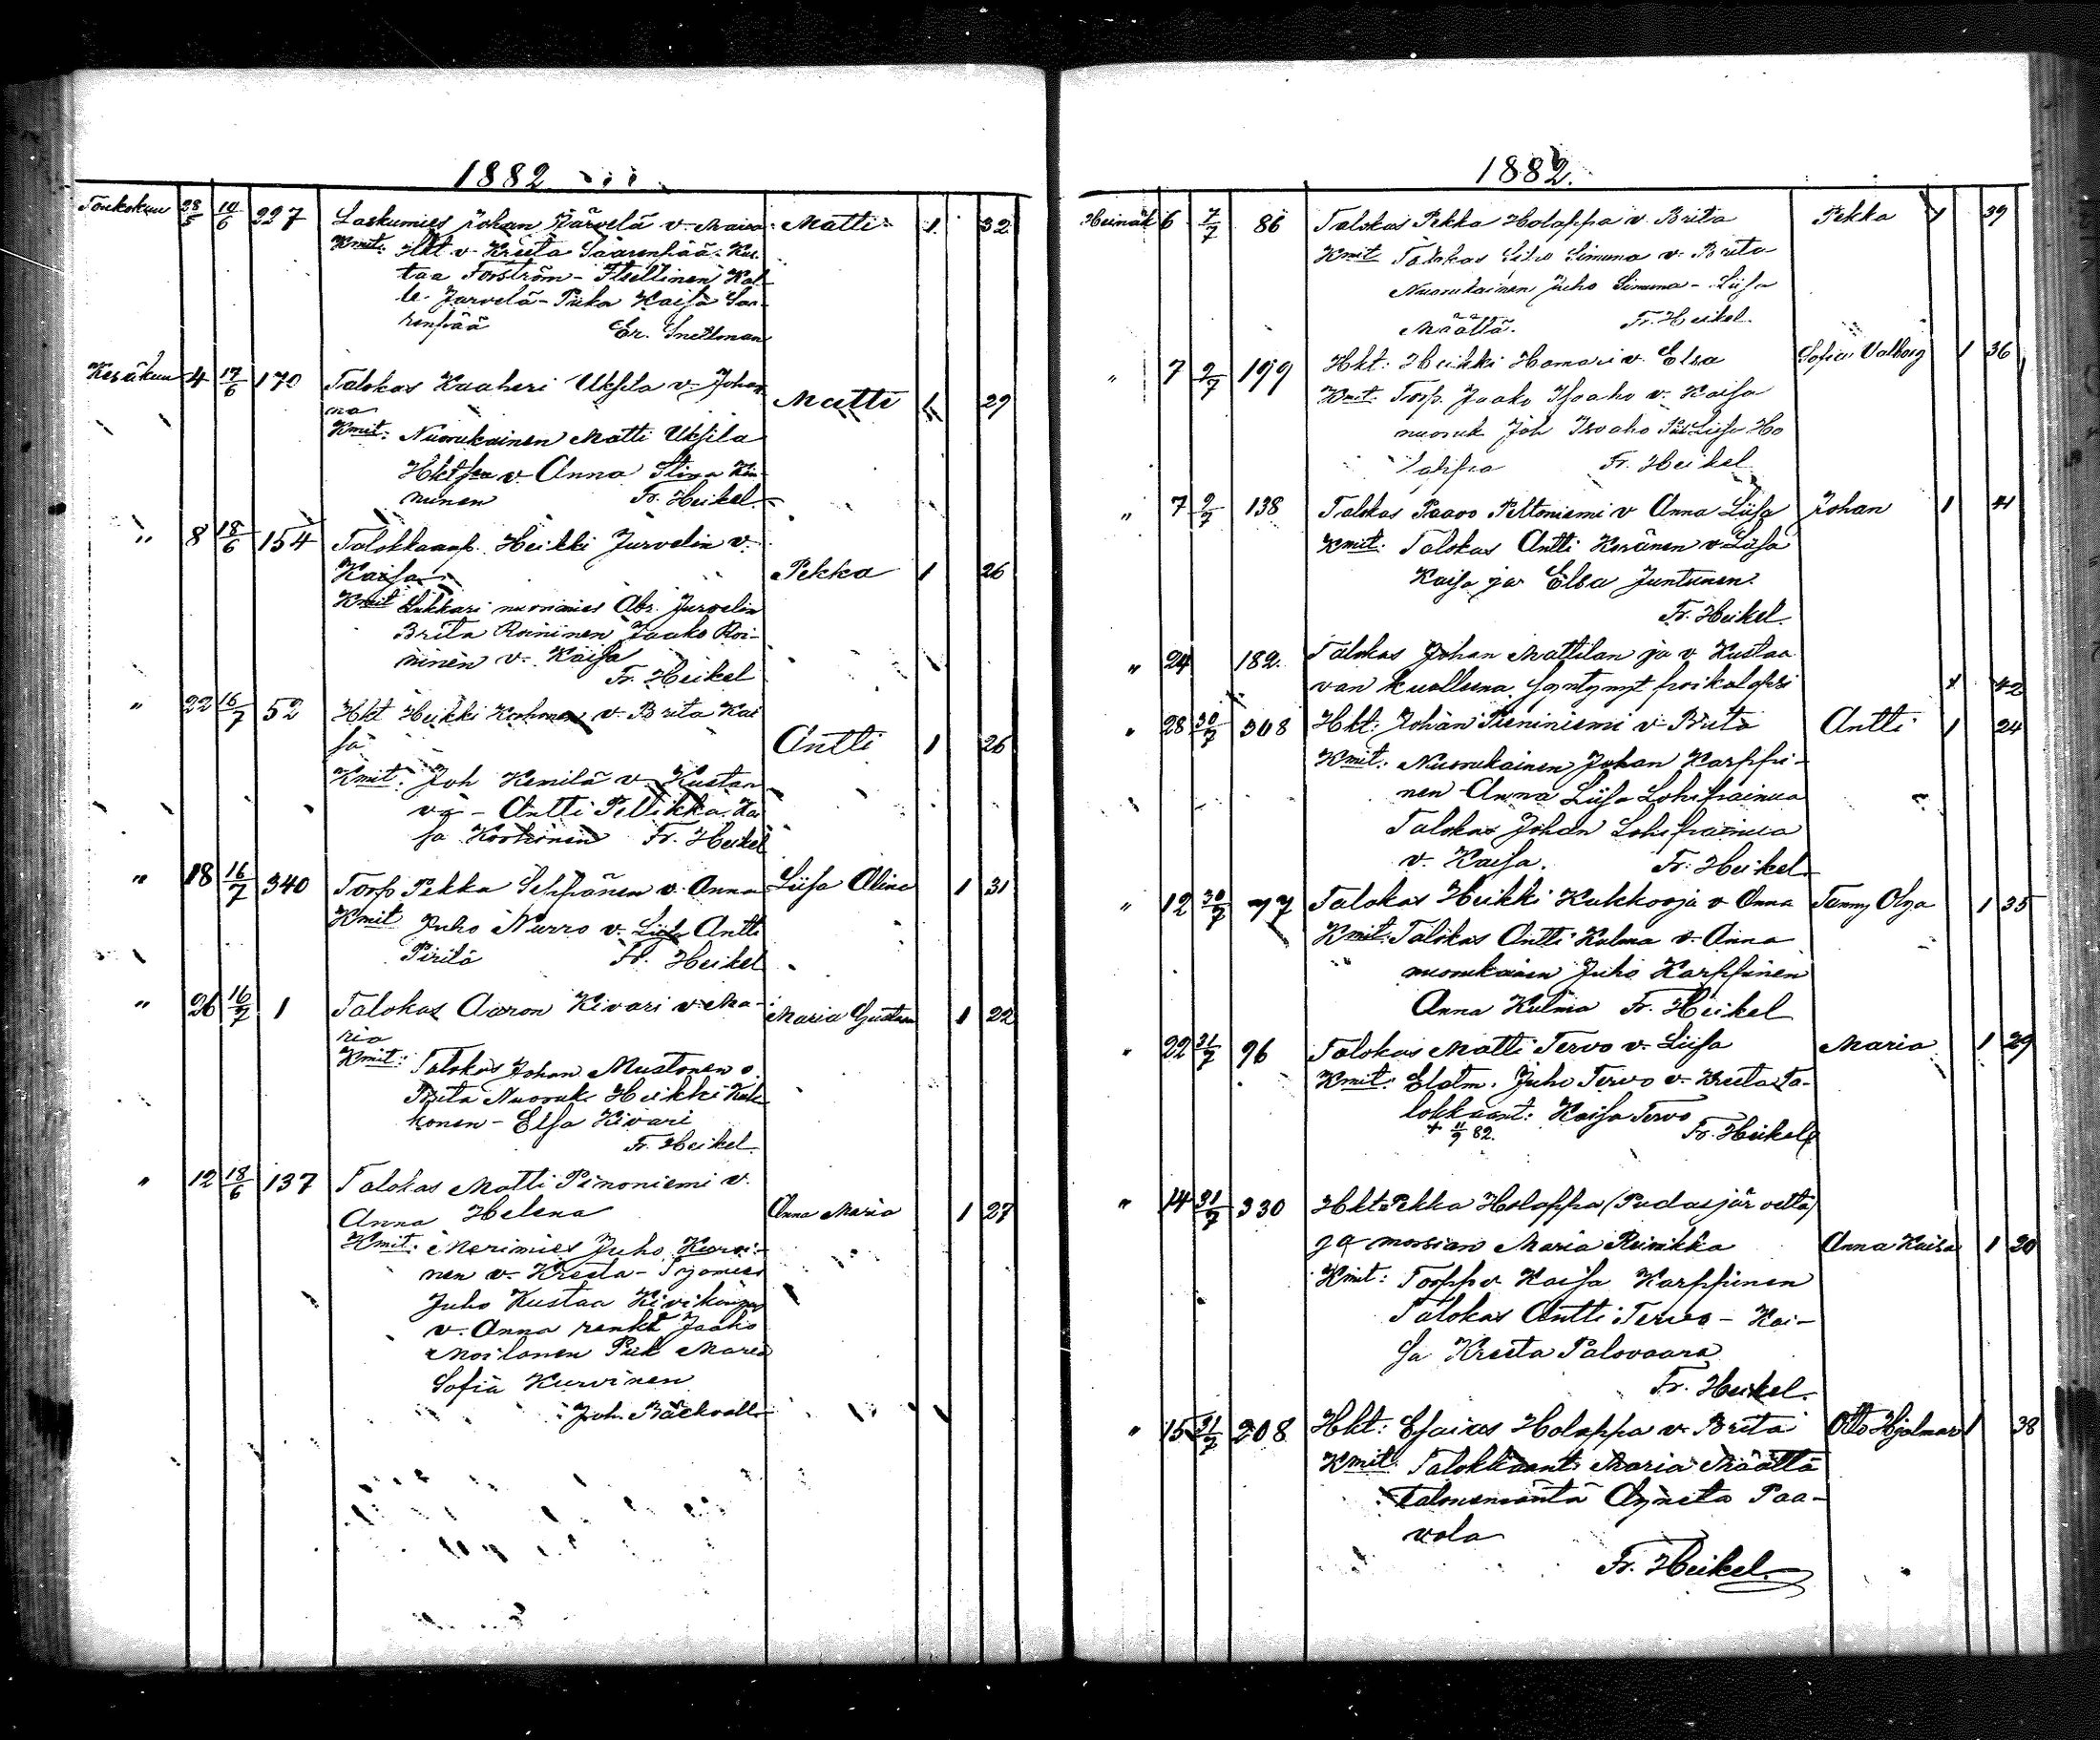 1882
Toukokuu 28/5 10/6 227 Laskumies Johan Järvelä v. Maria Matti 1 32
Kmit: Hkt v. Kreeta Saarenpää - Kus-
taa Forström - Itsellinen Kal-
le Jarvelä - Piika Kaisa Saa-
renpää Er. Snellman
Kesäkuu 4 17/6 170 Talokas Kaaperi Uksila v. Johan- Matti 1 29
na
Kmit: Nuorukainen Matti Uksila
Hkt v. Anna Stina
nunen Fr. Heikel.
" 8 18/6 154 Talokkaanp. Heikki Jurvelin v.
Kaisa Pekka 1 26
Kmit Lukkari nuorimies Abr. Jurvelin
Brita Roininen Jaako Roi-
ninen v. Kaisa
Fr. Heikel
" 22 16/7 52 Hkt Heikki v. Brita Kai
sa Antti 1 26
Kmit: Joh Kemilä v. Kustaa
va - Antti Pellikka. Kai
sa Fr. Heikel
" 18 16/7 340 Torp Pekka Seppänen v. Anna Liisa Alina 1 31
Kmit Juho Nurro v. Liisa Antti
Piritä Fr. Heikel
" 26 16/7 1 Talokas Aaron Kivari v. Ma- Maria Gustava 1 22
ria
Kmit: Talokas Johan Mustonen v.
Brita Nuoruk. Heikki
konen - Elsa Kivari
Fr. Heikel.
" 12 18/6 137 Talokas Matti Pinoniemi v.
Anna Helena Anna Maria 1 27
Kmit: Merimies Juho Kurvi-
nen v. Kreeta - Työmies
Juho Kustaa Kivikangas
v. Anna renki Jaako
Moilanen Piik Maria
Sofia Kurvinen
Joh. Bäckvall
1882.
Heinäk 6 7/7 86 Talokas Pekka Holappa v. Brita Pekka 1 39
Kmit Talokas Simuna v. Brita
Nuorukainen Juho Simuna - Liisa
Määttä. Fr. Heikel.
" 7 9/7 199 Hkt: Heikki Hamari v. Elsa Sofia Valborg 1 36
Kmit: Torp. Jaako Isoaho v. Kaisa
nuoruk Joh Isoaho Piik Liisa Ho
lappa Fr. Heikel
" 7 9/7 138 Talokas Paavo Peltoniemi v Anna Liisa Johan 1 41
Kmit: Talokas Antti Keränen v. Liisa
Kaisa ja Elsa Juntunen.
Fr. Heikel.
" 24 182. Talokas Johan Mattilan ja v. Kustaa
van kuolleena syntynyt poikalapsi 1 42
" 28 30/7 308 Hkt: Johan Pieniniemi v. Brita Antti 1 24
Kmit: Nuorukainen Johan Karppi-
nen Anna Liisa Lohipainua
Talokas Johan Lohipainua
v. Kaisa. Fr. Heikel
" 12 30/7 77 Talokas Heikki Kukkooja v Anna Fanny Olga 1 35
Kmit: Talokas Antti Kulma v. Anna
nuorukainen Juho Karppinen
Anna Kulma Fr. Heikel
" 22 31/7 96 Talokas Matti Tervo v. Liisa Maria 1 29
Kmit: Elatm. Juho Tervo v. Kreeta Ta-
lokkaant: Kaisa Tervo
+ 11/9 82. Fr. Heikel
" 14 31/7 330 Hkt Pekka Holappa (Pudasjärveltä)
ja morsian Maria Reinikka Anna Kaisa 1 20
Kmit: Torpp v Kaisa Karppinen
Talokas Antti Tervo - Kai-
sa Kreeta Palovaara
Fr. Heikel.
" 15 31/7 208 Hkt: Esaias Holappa v. Brita Otto Hjalmar 1 38
Kmit. Talokkaant: Maria Määttä
Talonemäntä Agneta Paa-
vola
Fr. Heikel.